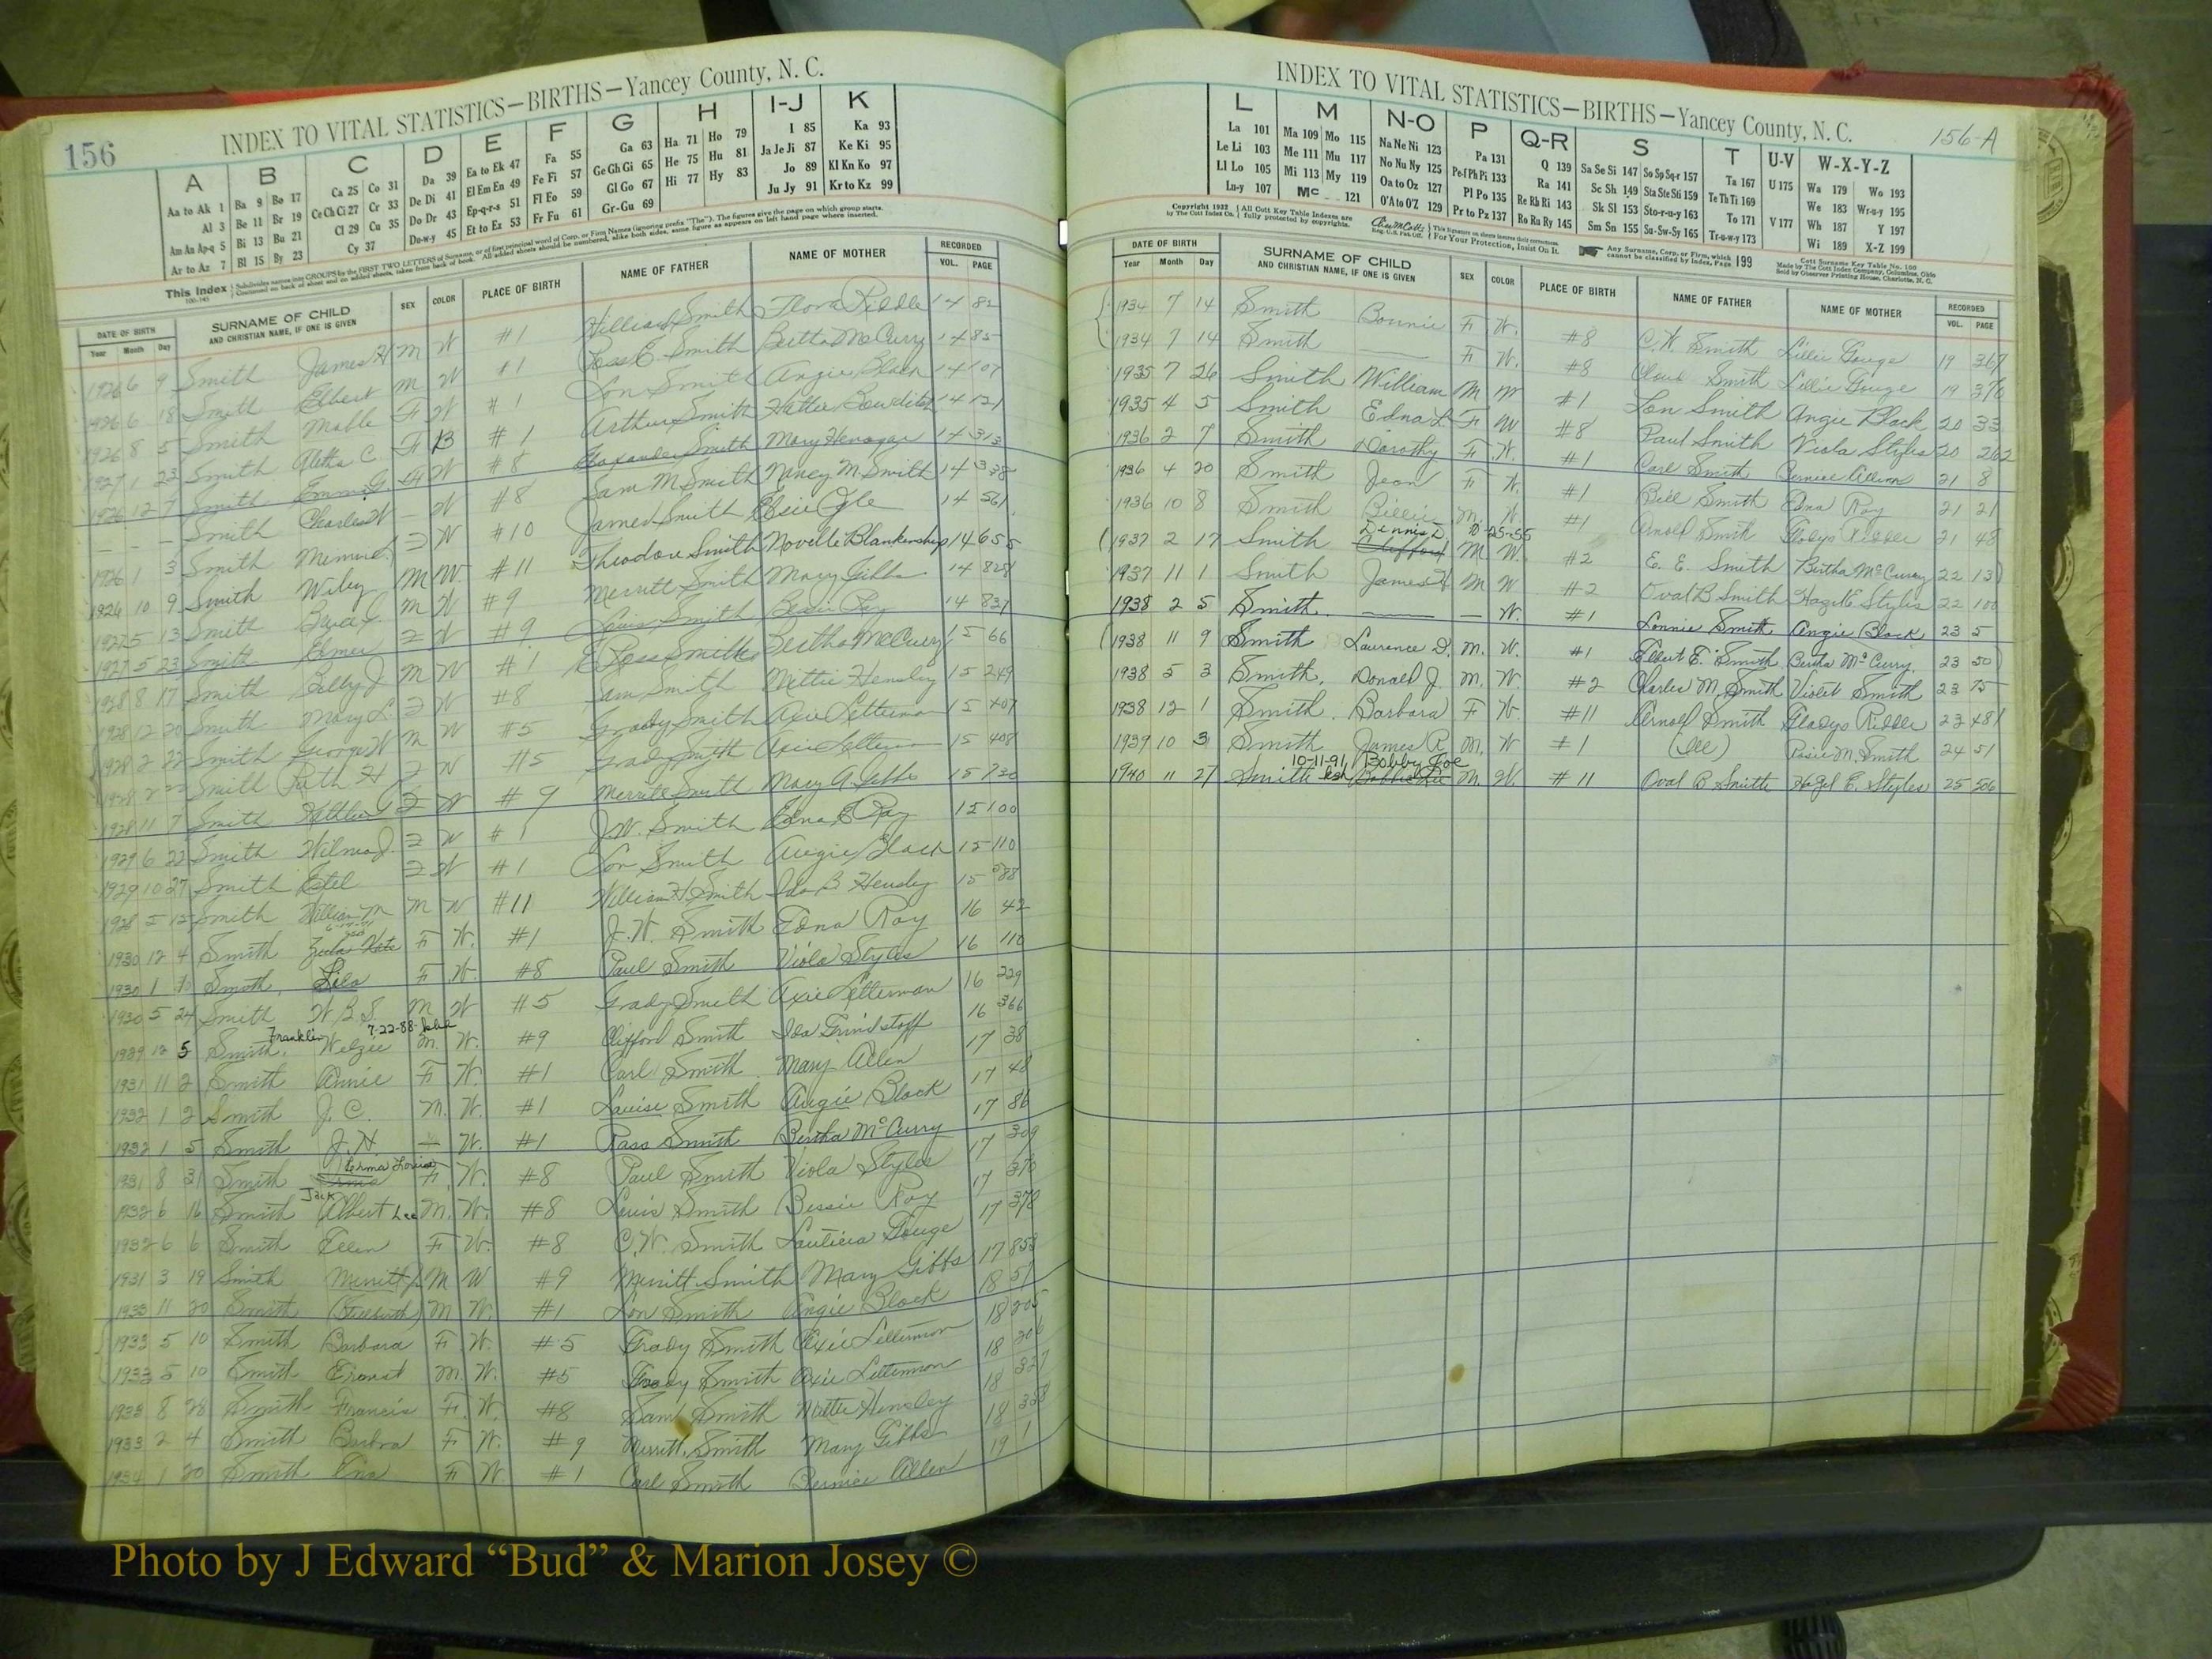 156
INDEX TO VITAL STATISTICS—BIRTHS—Yancey County, N. C.
A B C D E F G H I-J K
Aa to Ak 1 Ba 9 Bo 17 Ca 25 Co 31 Da 39 Ea to Ek 47 Fa 55 Ga 63 Ha 71 Ho 79 I 85 Ka 93
Al 3 Be 11 Br 19 Ce Ch Ci 27 Cr 33 De Di 41 El Em En 49 Fe Fi 57 Ge Gh Gi 65 He 75 Hu 81 Ja Je Ji 87 Ke Ki 95
Am An Ap-q 5 Bi 13 Bu 21 Cl 29 Cu 35 Do Dr 43 Ep-q-r-s 51 Fl Fo 59 Gl Go 67 Hi 77 Hy 83 Jo 89 Kl Kn Ko 97
Ar to Az 7 Bl 15 By 23 Cy 37 Du-w-y 45 Et to Ez 53 Fr Fu 61 Gr-Gu 69 Ju Jy 91 Kr to Kz 99
DATE OF BIRTH SURNAME OF CHILD SEX COLOR PLACE OF BIRTH NAME OF FATHER NAME OF MOTHER RECORDED
Year Month Day AND CHRISTIAN NAME, IF ONE IS GIVEN VOL. PAGE
1926 6 9 Smith James H M W #1 William Smith Flora Riddle 14 82
1926 6 18 Smith Elbert M W #1 Ross E. Smith Bertha McCurry 14 85
1926 8 5 Smith Mable F W #1 Lon Smith Angie Black 14 107
1927 1 23 Smith Aletha C. F B #1 Arthur Smith Hattie 14 121
1926 12 7 Smith Emma G. F W #8 Smith Mary 14 313
— — — Smith Charles W — W #8 Sam M Smith Nancy M. Smith 14 338
1926 1 3 Smith F W #10 James Smith Elsie Ogle 14 561
1926 10 9 Smith Wiley M W. #11 Theodore Smith Novella Blankenship 14 655
1927 5 13 Smith M W #9 Merritt Smith Mary Gibbs 14 828
1927 5 23 Smith Elmer F W #9 Louis Smith Bessie Ray 14 837
1928 8 17 Smith Billy J M W #1 E Ross Smith Bertha McCurry 15 66
1928 12 20 Smith Mary L. F W #8 Sam Smith Mettie Hensley 15 249
1928 2 22 Smith George W M W #5 Grady Smith Axie Letterman 15 407
1928 2 22 Smith Ruth H F W #5 Grady Smith Axie Letterman 15 408
1928 11 7 Smith F W #9 Merritt Smith Mary A. Gibbs 15 730
1929 6 22 Smith Wilma J. F W #1 J.W. Smith Edna E Ray 15 100
1929 10 27 Smith Estel F W #1 Lon Smith Angie Black 15 110
1928 5 12 Smith William M M W #11 William H. Smith Ida B. Hensley 15 988
1930 12 4 Smith Zeela Kate F W. #1 J. W. Smith Edna Ray 16 42
1930 1 10 Smith, Lila F W. #8 Paul Smith Viola Styles 16 110
1930 5 24 Smith W. B. S. M W #5 Grady Smith Axie Letterman 16 229
Franklin 7-22-88
1929 12 5 Smith, Welzie M. W. #9 Clifford Smith Ida Grindstaff 16 366
1931 11 2 Smith Annie F W. #1 Carl Smith Mary Allen 17 38
1932 1 2 Smith J. C. M. W. #1 Louise Smith Angie Black 17 48
1932 1 5 Smith J. H — W. #1 Ross Smith Bertha McCurry 17 86
Lerma Louise
1931 8 31 Smith Irma F. W. #8 Paul Smith Viola Styles 17 309
Jack
1932 6 16 Smith Albert Lee M. W. #8 Louis Smith Bessie Ray 17 370
1932 6 6 Smith Ellen F W. #8 C. W. Smith Lauticia Gouge 17 378
1931 3 19 Smith Merritt Jr M W #9 Merritt Smith Mary Gibbs 17 853
1933 11 20 Smith (Stillbirth) M W. #1 Lon Smith Angie Black 18 57
1933 5 10 Smith Barbara F W. #5 Grady Smith Axie Letterman 18 205
1933 5 10 Smith Ernest M. W. #5 Grady Smith Axie Letterman 18 206
1933 8 28 Smith Francis F. W. #8 Sam Smith Mettie Hensley 18 327
1933 2 4 Smith Barbra F W. #9 Merritt Smith Mary Gibbs 18 358
1934 1 20 Smith F W. #1 Carl Smith Bernice Allen 19 1
INDEX TO VITAL STATISTICS—BIRTHS—Yancey County, N. C. 156-A
L M N-O P Q-R S T U-V W-X-Y-Z
La 101 Ma 109 Mo 115 Na Ne Ni 123 Pa 131 Q 139 Sa Se Si 147 So Sp Sq-r 157 Ta 167 U 175 Wa 179 Wo 193
Le Li 103 Me 111 Mu 117 No Nu Ny 125 Pe-f Ph Pi 133 Ra 141 Sc Sh 149 Sta Ste Sti 159 Te Th Ti 169 We 183 Wr-u-y 195
Ll Lo 105 Mi 113 My 119 Oa to Oz 127 Pl Po 135 Re Rh Ri 143 Sk Sl 153 Sto-r-u-y 163 To 171 V 177 Wh 187 Y 197
Lu-y 107 Mc 121 O'A to O'Z 129 Pr to Pz 137 Ro Ru Ry 145 Sm Sn 155 Su-Sw-Sy 165 Tr-u-w-y 173 Wi 189 X-Z 199
DATE OF BIRTH SURNAME OF CHILD SEX COLOR PLACE OF BIRTH NAME OF FATHER NAME OF MOTHER RECORDED
Year Month Day AND CHRISTIAN NAME, IF ONE IS GIVEN VOL. PAGE
1934 7 14 Smith Bonnie F W. #8 C. W. Smith Lillie Gouge 19 367
1934 7 14 Smith — F W. #8 Smith Lillie Gouge 19 370
1935 7 26 Smith William M W #1 Lon Smith Angie Black 20 33
1935 4 5 Smith Edna L. F W #8 Paul Smith Viola Styles 20 262
1936 2 7 Smith Dorothy F. W. #1 Carl Smith Bernice Allen 21 8
1936 4 20 Smith Jean F W. #1 Bill Smith Edna Ray 21 21
1936 10 8 Smith Billie M. W. #1 Arnold Smith Gladys Riddle 21 48
Dennis D. 10-25-55
1937 2 17 Smith Clifford M W. #2 E. E. Smith Bertha McCurry 22 13
1937 11 1 Smith James H M W #2 Oval B Smith Hazel E Styles 22 100
1938 2 5 Smith. — — W. #1 Lonnie Smith Angie Black 23 5
1938 11 9 Smith Laurance D. M. W. #1 Elbert E. Smith Bertha McCurry. 23 50
1938 5 3 Smith. Donald J. M. W. #2 Charles M. Smith Violet Smith 23 75
1938 12 1 Smith. Barbara F W. #11 Arnold Smith Gladys Riddle 23 481
1939 10 3 Smith James R. M. W #1 (Ill) Rosie M. Smith 24 51
10-11-91 Bobby Joe
1940 11 27 Smith M. W. #11 Oval B Smith Hazel E. Styles 25 506
Photo by J Edward “Bud” & Marion Josey ©